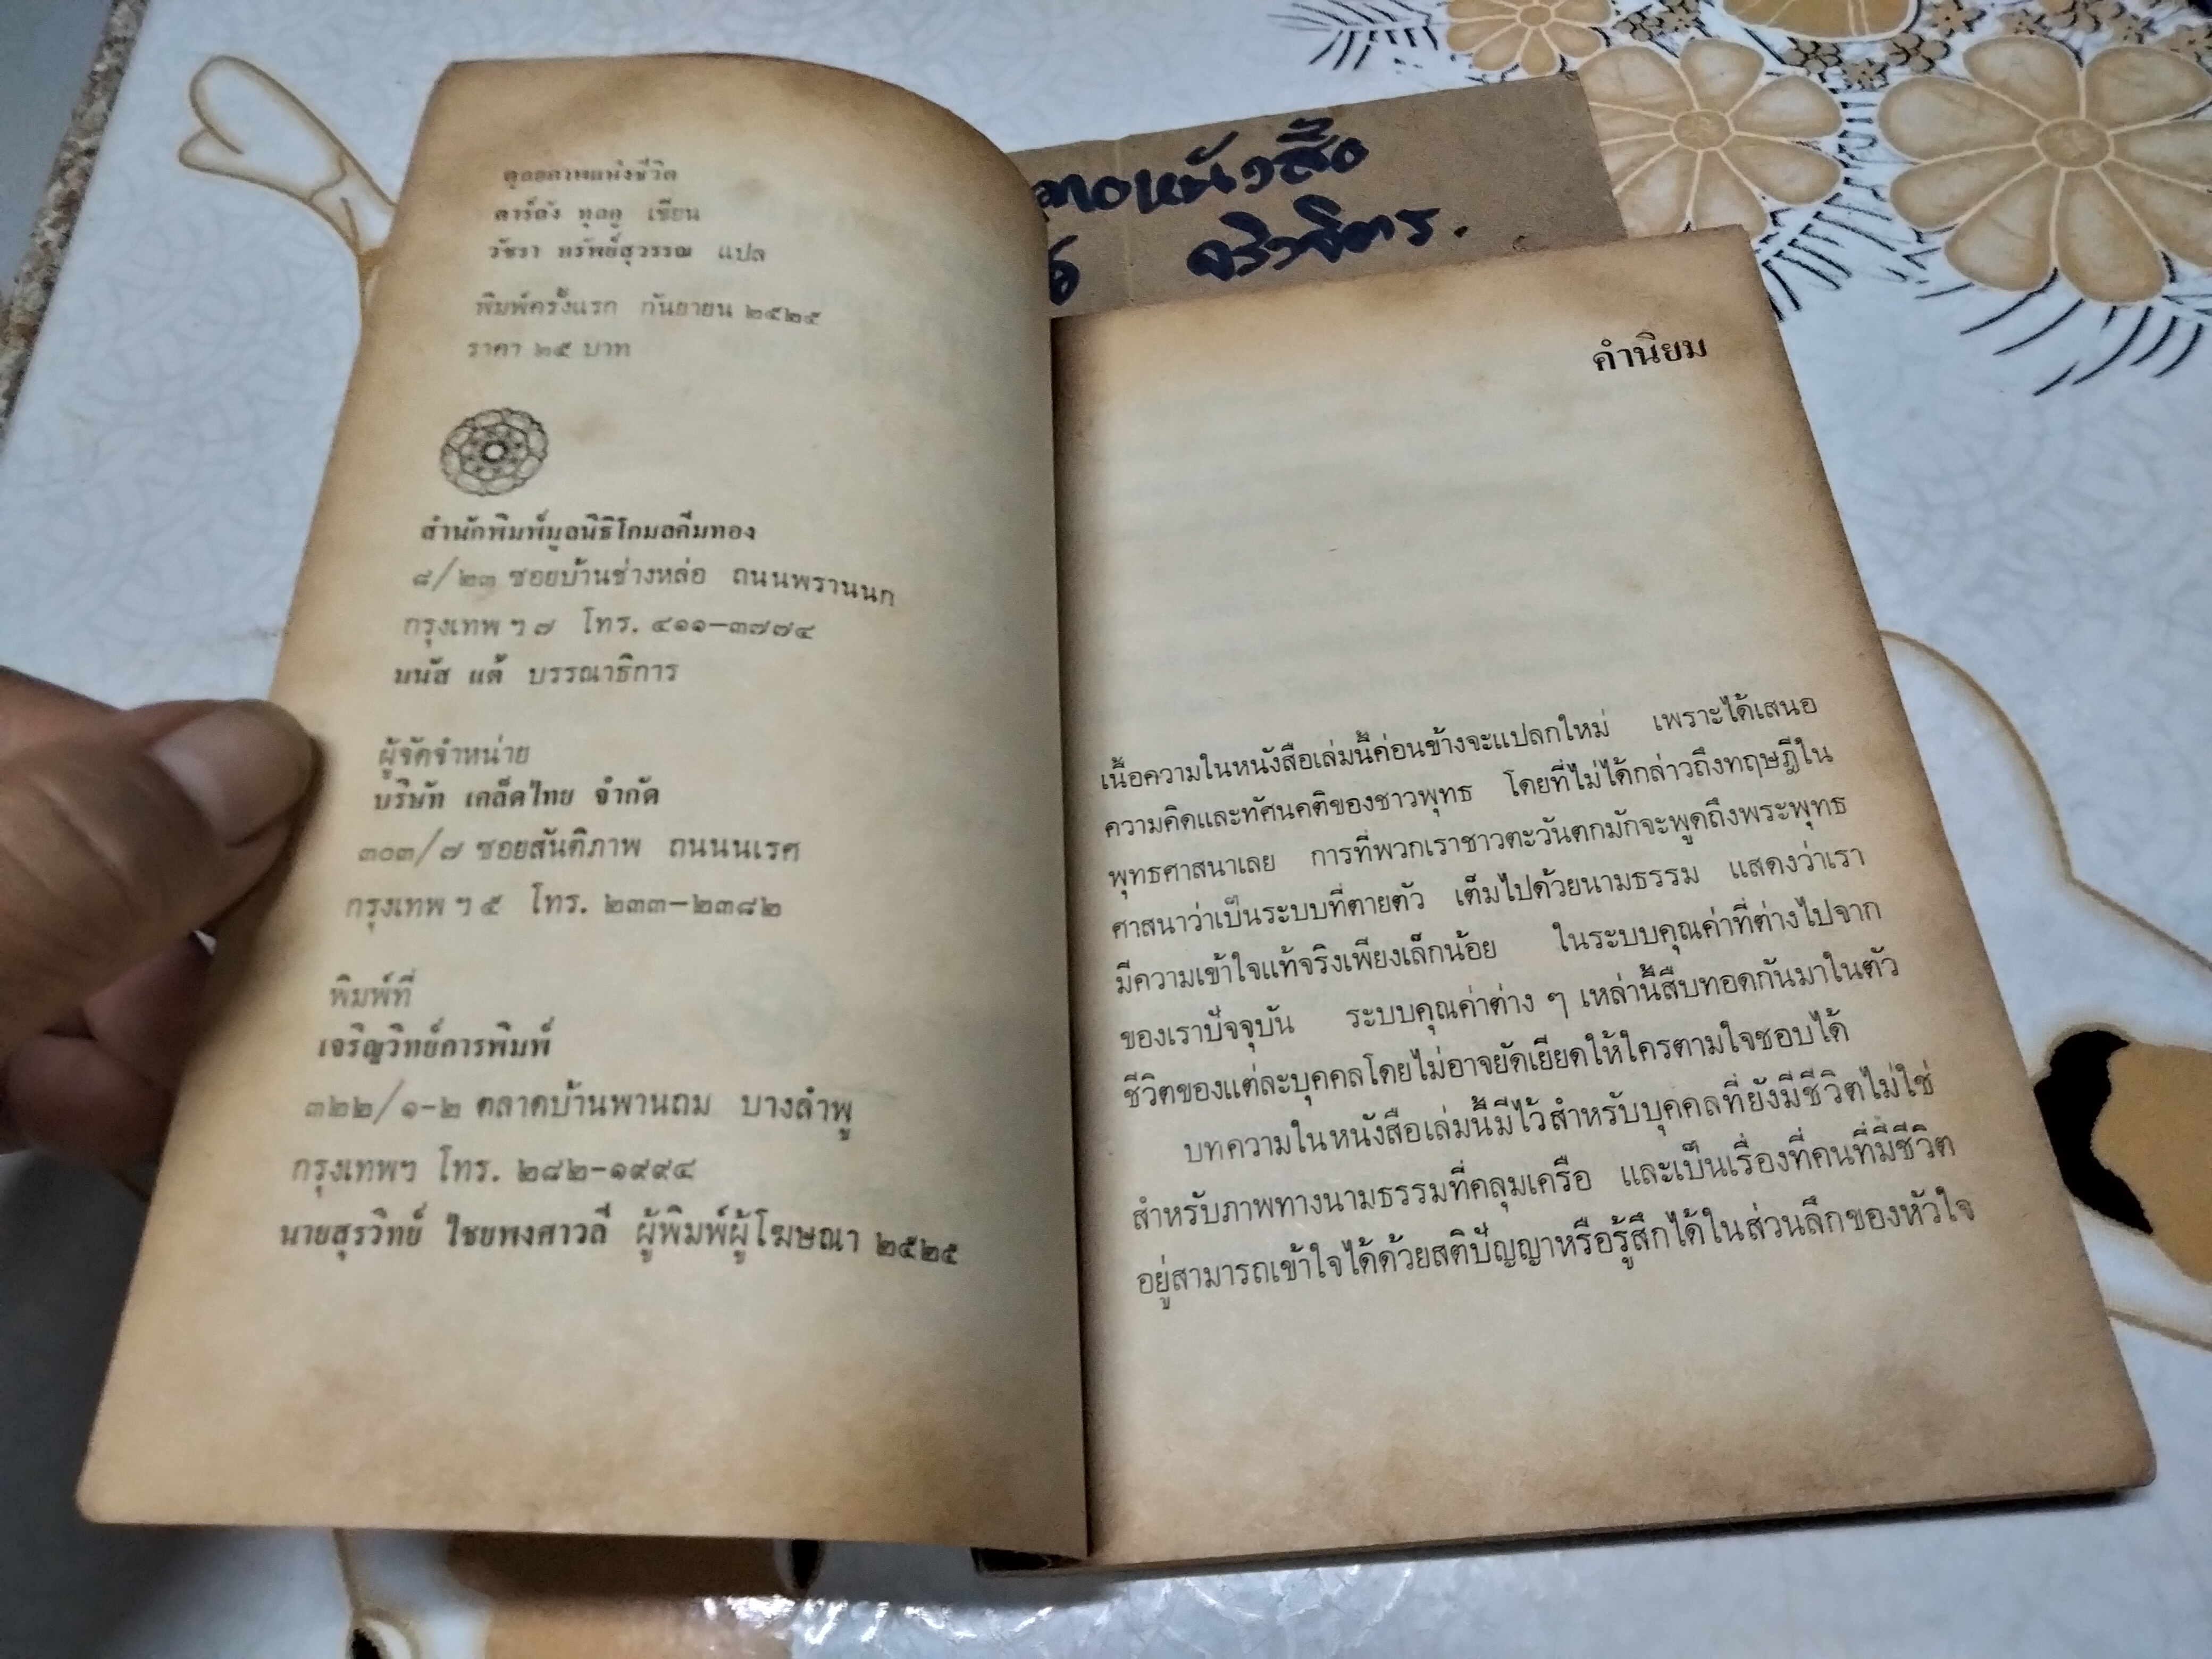 ดุลยภาพแห่งชีวิต
ตาร์ถัง ทุลกู เขียน
วัชรา ทรัพย์สุวรรณ แปล
พิมพ์ครั้งแรก กันยายน ๒๕๒๕
ราคา ๒๕ บาท
สำนักพิมพ์มูลนิธิโกมลคีมทอง
๘/๒๓ ซอยบ้านช่างหล่อ ถนนพรานนก
กรุงเทพ ฯ ๗ โทร. ๔๑๑-๓๗๗๔
มนัส แต้ บรรณาธิการ
ผู้จัดจำหน่าย
บริษัท เคล็ดไทย จำกัด
๓๐๓/๗ ซอยสันติภาพ ถนนนเรศ
กรุงเทพ ฯ ๕ โทร. ๒๓๓-๒๓๘๒
พิมพ์ที่
เจริญวิทย์การพิมพ์
๓๒๒/๑-๒ ตลาดบ้านพานถม บางลำพู
กรุงเทพฯ โทร. ๒๘๒-๑๙๙๔
นายสุรวิทย์ ใชยพงศาวลี ผู้พิมพ์ผู้โฆษณา ๒๕๒๕
หนังสือ
จริงจิตร.
คำนิยม
เนื้อความในหนังสือเล่มนี้ค่อนข้างจะแปลกใหม่ เพราะได้เสนอ
ความคิดและทัศนคติของชาวพุทธ โดยที่ไม่ได้กล่าวถึงทฤษฎีใน
พุทธศาสนาเลย การที่พวกเราชาวตะวันตกมักจะพูดถึงพระพุทธ
ศาสนาว่าเป็นระบบที่ตายตัว เต็มไปด้วยนามธรรม แสดงว่าเรา
มีความเข้าใจแท้จริงเพียงเล็กน้อย ในระบบคุณค่าที่ต่างไปจาก
ของเราปัจจุบัน ระบบคุณค่าต่าง ๆ เหล่านี้สืบทอดกันมาในตัว
ชีวิตของแต่ละบุคคลโดยไม่อาจยัดเยียดให้ใครตามใจชอบได้
บทความในหนังสือเล่มนี้มีไว้สำหรับบุคคลที่ยังมีชีวิตไม่ใช่
สำหรับภาพทางนามธรรมที่คลุมเครือ และเป็นเรื่องที่คนที่มีชีวิต
อยู่สามารถเข้าใจได้ด้วยสติปัญญาหรือรู้สึกได้ในส่วนลึกของหัวใจ